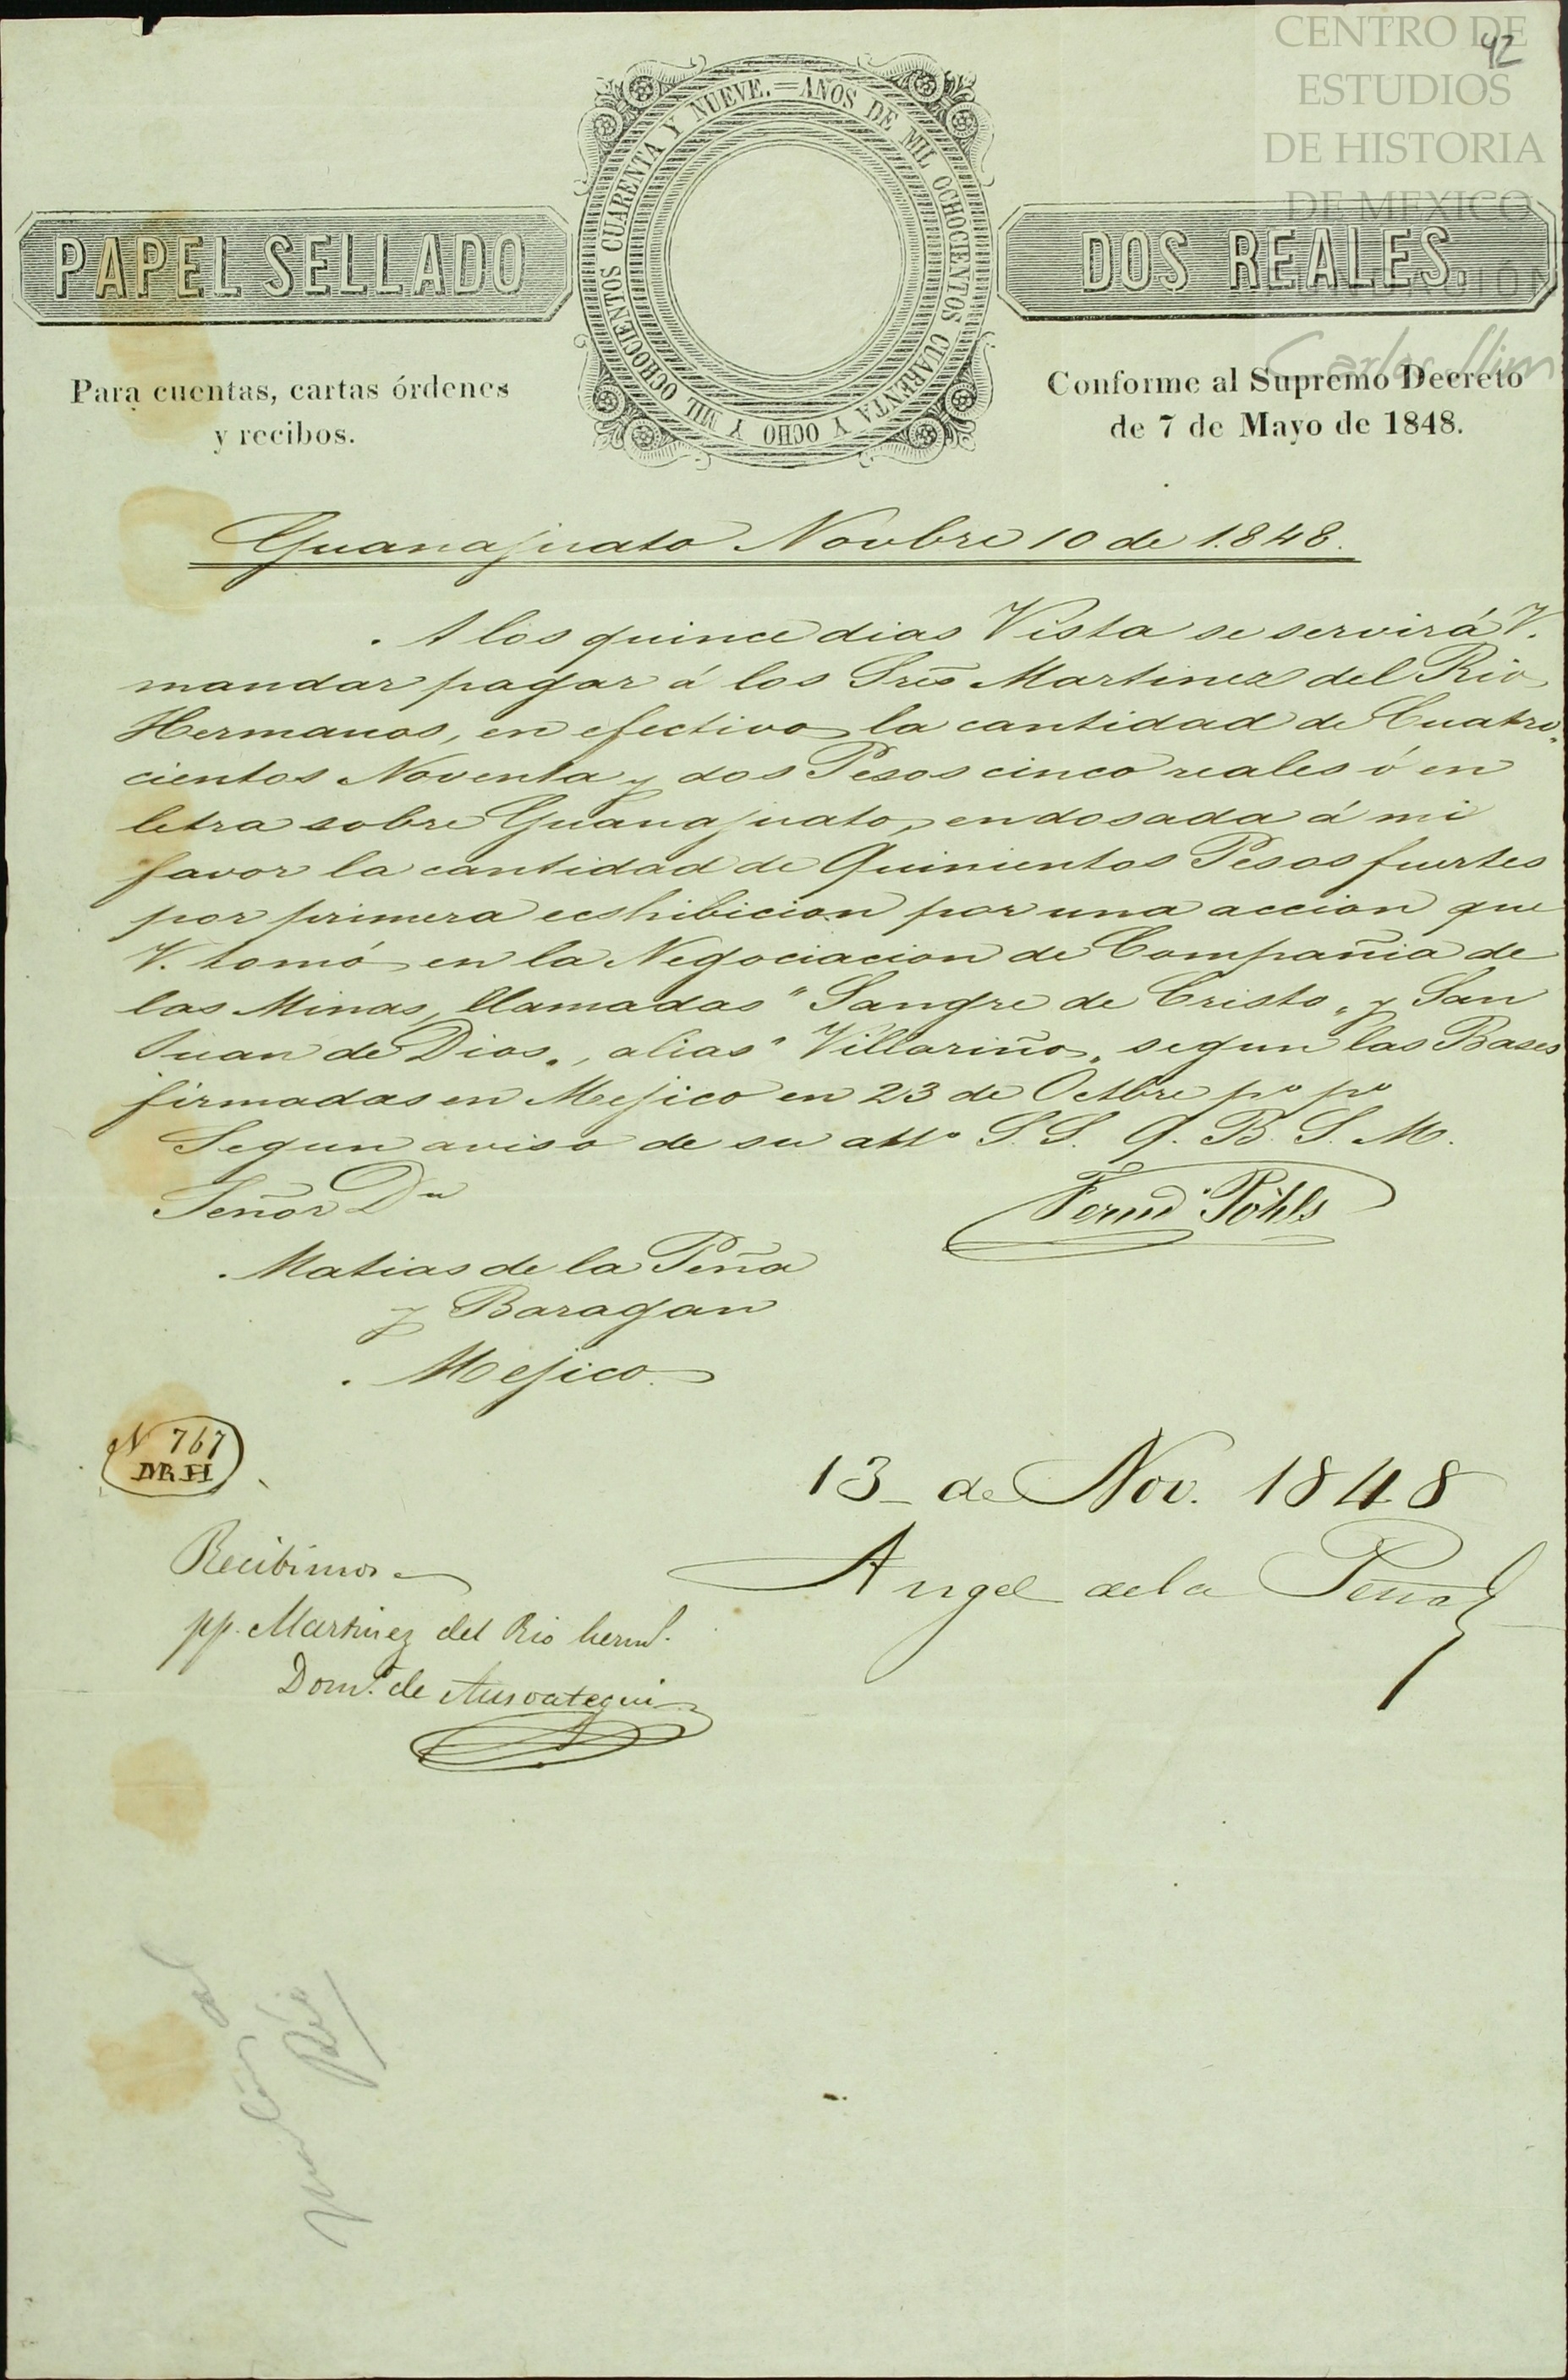 CENTRO DE
ESTUDIOS
DE HISTORIA
DE MEXICO
42
AÑOS DE MIL OCHOCIENTOS CUARENTA Y OCHO Y MIL OCHOCIENTOS CUARENTA Y NUEVE.
PAPEL SELLADO
DOS REALES.
Para cuentas, cartas órdenes
y recibos.
Carlos Slim
Conforme al Supremo Decreto
de 7 de Mayo de 1848.
Guanajuato Novbre 10 de 1848.
A los quince dias Vista se servirá V.
mandar pagar á los Sres Martinez del Rio
Hermanos, en efectivo la cantidad de Cuatro-
cientos Noventa y dos Pesos cinco reales ó en
letra sobre Guanajuato, endosada á mi
favor la cantidad de Quinientos Pesos fuertes
por primera ecshibicion por una accion que
V. tomó en la Negociacion de Compañia de
las Minas, llamadas "Sangre de Cristo„ y San
Juan de Dios„, alias "Villariño„ segun las Bases
firmadas en Mejico en 23 de Octbre po po
Segun aviso de su atto S.S. Q. B. S. M.
Señor Dn
Fernd Pöhls
Matias de la Peña
y Baragan
Mejico.
N 767
MRH
13 de Nov. 1848
Angel de la Peña
Recibimos
pp. Martinez del Rio herms.
Domo. de Ansoategui
Martínez del
Río